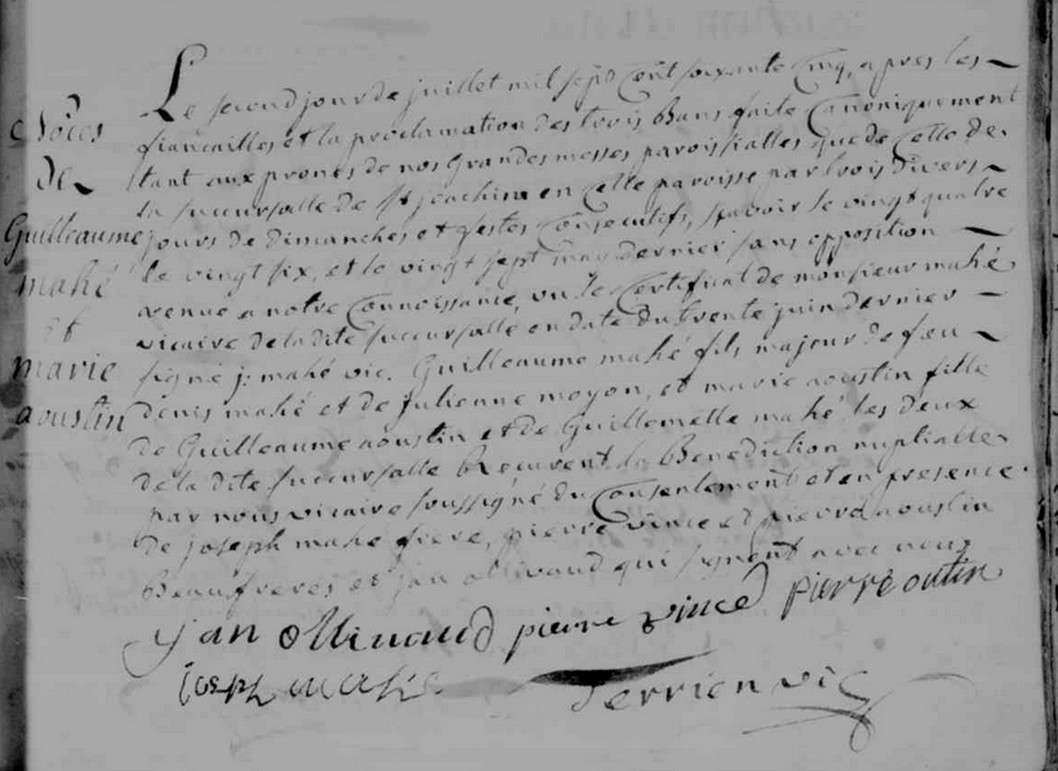 Nôces
de
Guilleaume
mahé
et
marie
aoustin
Le second jour de juillet mil sept cent soixante cinq, apres les
fiancailles et la proclamation des trois Bans faite Canoniquement
tant aux prones de nos Grandes messes paroissialles que de Celle de
la succursalle de st joachim en Cette paroisse par trois divers
jours de dimanches et festes Consecutifs, sçavoir le vingt quatre
le vingt six, et le vingt sept may dernier sans opposition
venue a notre Connoissance, vu le Certificat de monsieur mahé
vicaire de la dite succursalle, en date du trente juin dernier
signé j: mahé vic. Guilleaume mahé fils majeur de feu
denis mahé et de julienne moyon, et marie aoustin fille
de Guilleaume aoustin et de Guillemette mahé les deux
de la dite succursalle Recurent la Benediction nuptialle
par nous vicaire soussigné du Consentement et en presence
de joseph mahé frere, pierre vince et pierre aoustin
Beaufreres et jan ollivaud qui signent avec nous
jan ollivaud pierre vince pierre outin
joseph mahé
Terrien vic